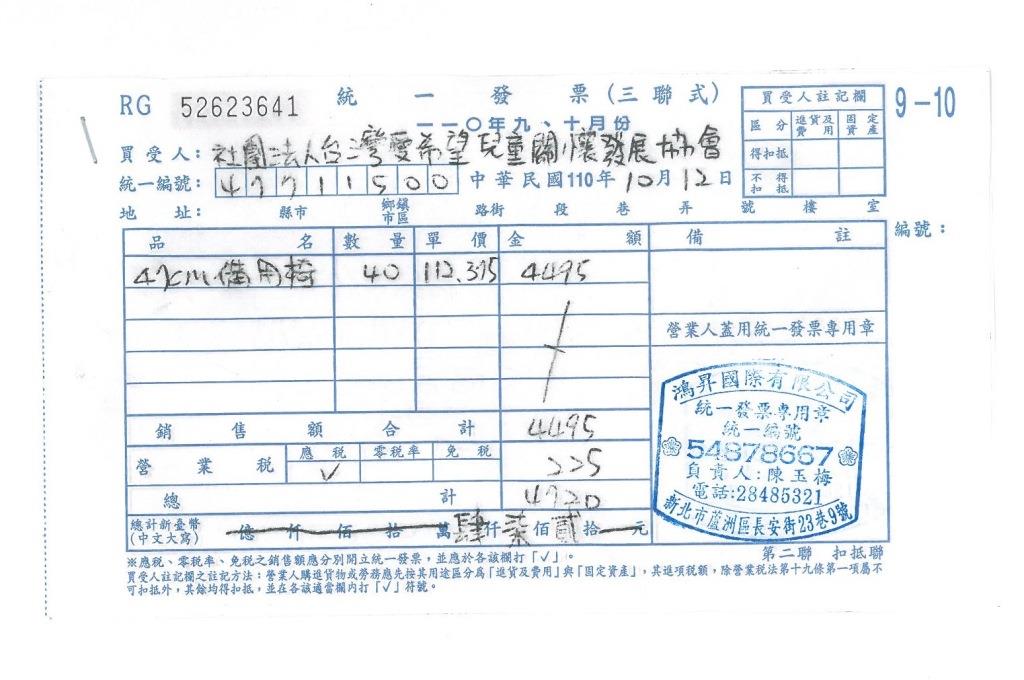 RG 52623641 統一發票(三聯式)
一一〇年九、十月份
9-10
買受人註記欄
區分 進貨及費用 固定資產
得扣抵
不得扣抵
買受人: 社團法人台灣愛希望兒童關懷發展協會
統一編號: 47711500 中華民國110年10月12日
地址: 縣市 鄉鎮市區 路街 段 巷 弄 號 樓 室
編號:
品名 數量 單價 金額 備註
47cm備用椅 40 112.375 4495
營業人蓋用統一發票專用章
銷售額合計 4495
營業稅 應稅 ✓ 零稅率 免稅 225
總計 4720
總計新臺幣(中文大寫) 億仟佰拾萬肆仟柒佰貳拾元
鴻昇國際有限公司
統一發票專用章
統一編號
54878667
負責人:陳玉梅
電話:28485321
新北市蘆洲區長安街23巷9號
第二聯 扣抵聯
※應稅、零稅率、免稅之銷售額應分別開立統一發票,並應於各該欄打「✓」。
買受人註記欄之註記方法:營業人購進貨物或勞務應先按其用途區分為「進貨及費用」與「固定資產」,其進項稅額,除營業稅法第十九條第一項屬不
可扣抵外,其餘均得扣抵,並在各該適當欄內打「✓」符號。